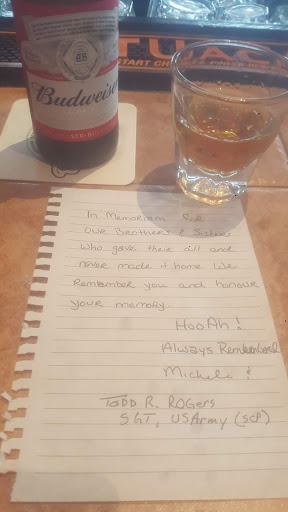 TUACA
START CH
Budweiser
In Memoriam for
our Brothers & Sisters
who gave their all and
never made it home We
Remember you and honour
your memory.
HooAh!
Always Remembered
Michele!
TODD R. ROGers
SGT, USArmy (SCP)